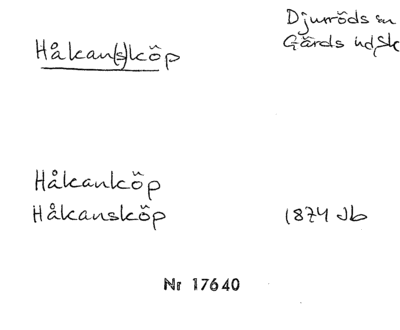 Håkan(s)köp
Djurröds sn
Gärds hd, Sk
Håkanköp
Håkansköp 1874 Jb
Nr 17640